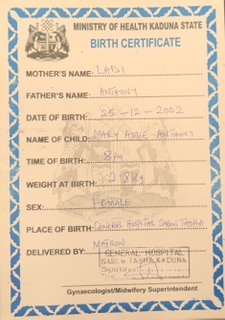 MINISTRY OF HEALTH KADUNA STATE
BIRTH CERTIFICATE
MOTHER'S NAME: LADI
FATHER'S NAME: ANTHONY
DATE OF BIRTH: 25-12-2002
NAME OF CHILD: MARY ANTHONY
TIME OF BIRTH: 8pm
WEIGHT AT BIRTH: 2.8Kg
SEX: FEMALE
PLACE OF BIRTH: GENERAL HOSPITAL SABON TASHA
DELIVERED BY: MATRON
GENERAL HOSPITAL
SABON TASHA KADUNA
Gynaecologist/Midwifery Superintendent